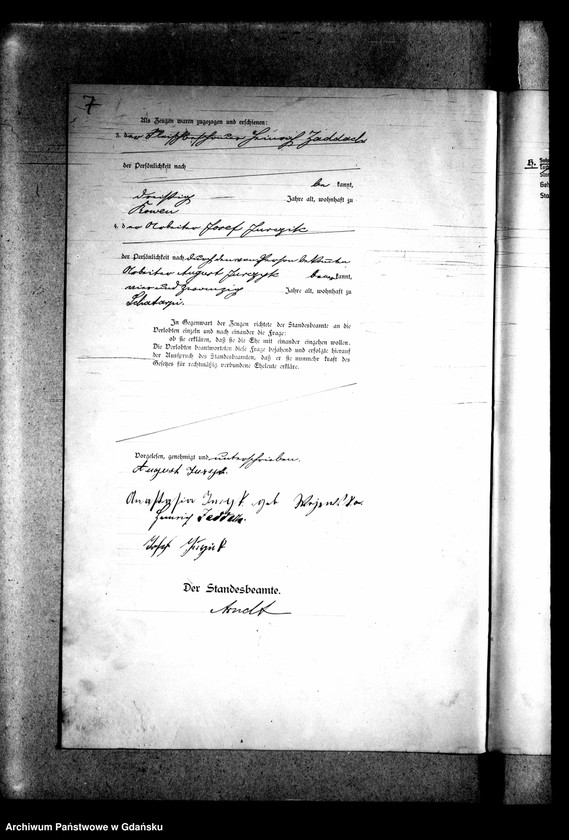 7
Als Zeugen waren zugezogen und erschienen:
3. der Fleischbeschauer Heinrich Zaddach
der Persönlichkeit nach
be kannt,
dreißig Jahre alt, wohnhaft zu
Kowen
4. der Arbeiter Josef Jurczik
der Persönlichkeit nach durch den von Person bekannten
Arbeiter August Jurczyk kannt,
vier und zwanzig Jahre alt, wohnhaft zu
In Gegenwart der Zeugen richtete der Standesbeamte an die
Verlobten einzeln und nach einander die Frage:
ob sie erklären, daß sie die Ehe mit einander eingehen wollen.
Die Verlobten beantworteten diese Frage bejahend und erfolgte hierauf
der Ausspruch des Standesbeamten, daß er sie nunmehr kraft des
Gesetzes für rechtmäßig verbundene Eheleute erkläre.
Vorgelesen, genehmigt und unterschrieben.
August
Anastasia geb
Heinrich Zaddach.
Josef
Der Standesbeamte.
Arndt
B.
Archiwum Państwowe w Gdańsku